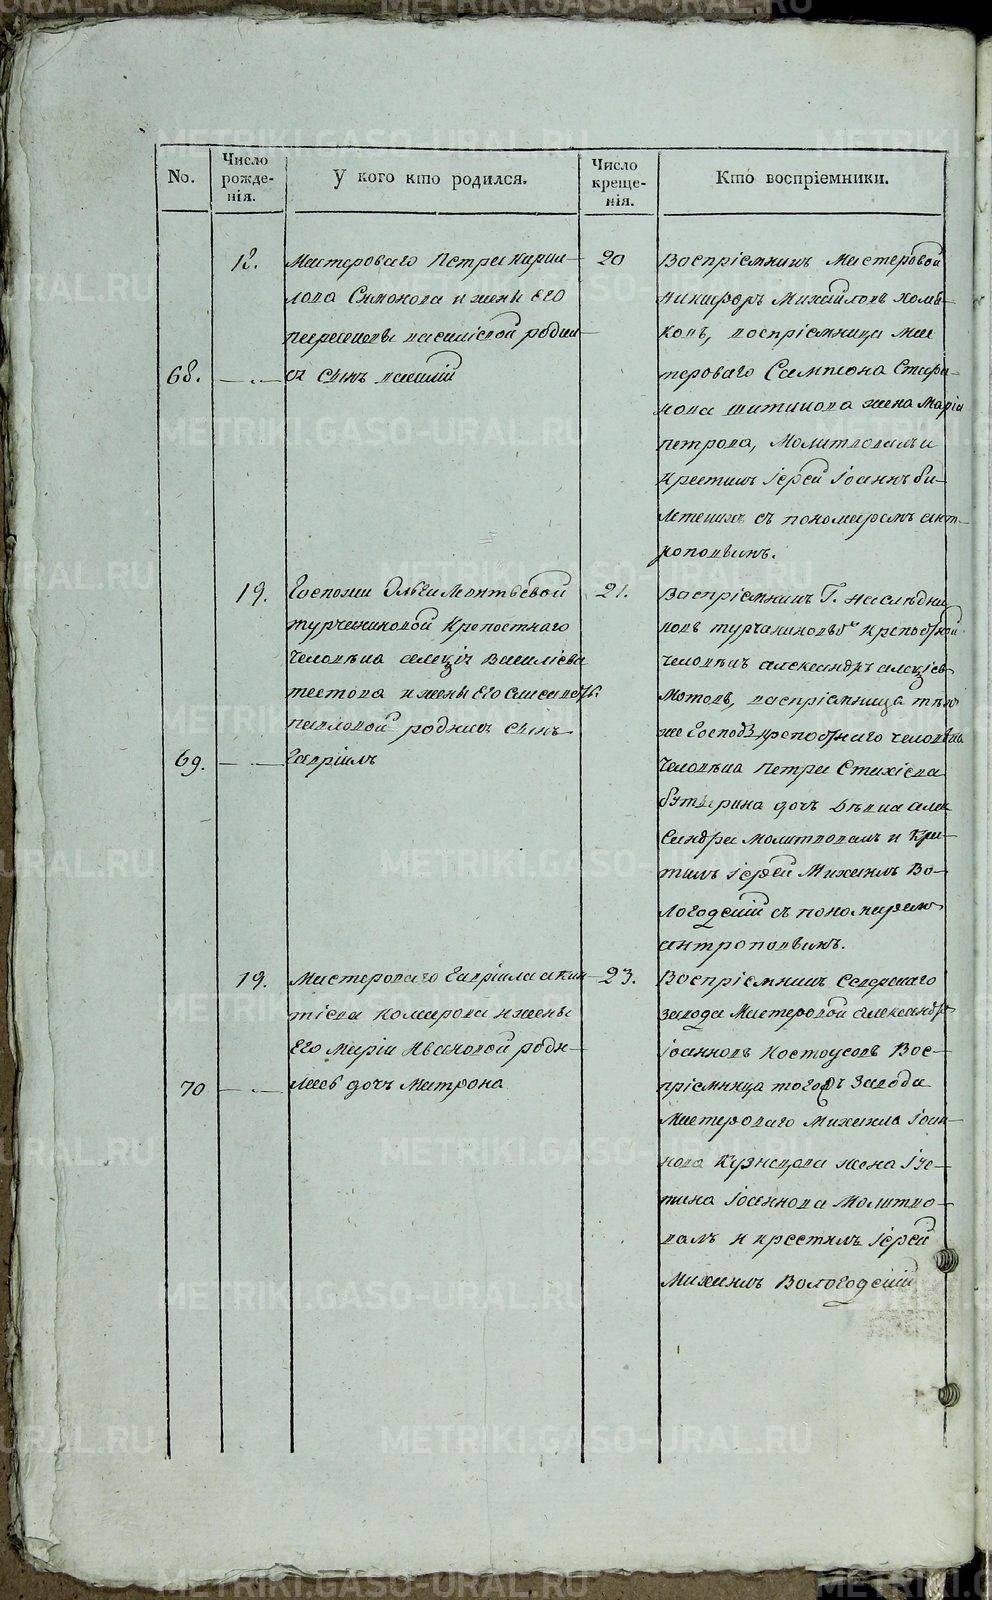 No.
Число рожде-
нія.
У кого кто родился.
Число креще-
нія.
Кто воспріемники.
Мастероваго Петра Кирил-
лова Симонова и жены Его
Василіевой родил
68.
ся сынъ Василій
20
Воспріемникъ Мастеровой
Никифоръ Михайловъ
ковъ, воспріемница Мас
тероваго Сампсона
жена Марія
Петрова, Молитвовалъ и
Крестилъ Іерей Іоаннъ
съ пономаремъ Ант-
роповымъ.
19.
Госпожи Ольги
Турчениновой Крепостнаго
Человѣка Алексія Василіева
и жены Его
Павловой родился сынъ
69.
Гавріилъ
21.
Воспріемникъ Г. Наслѣдни
ковъ Турчаниновыхъ Крепостной
Человѣкъ Александръ Алексіев
воспріемница тѣхъ
же Господъ крепостнаго человѣка
Человѣка Петра
дочь Дѣвка Алек
сандра Молитвовалъ и Кре-
тилъ Іерей Михаилъ Во-
логодскій съ пономаремъ
Антроповымъ.
19.
Мастероваго Гавріила Акин
тіева Комарова и жены
Его Маріи Ивановой роди-
70
лась дочь Матрона
23.
Воспріемникъ Северскаго
завода Мастеровой Александръ
Іоанновъ Костоусовъ Вос-
пріемница тогожъ Завода
Мастероваго Михаила Іоан-
нова Кузнецова жена Іус-
тина Іоаннова Молитво-
валъ и крестилъ Іерей
Михаилъ Вологодскій
METRIKI.GASO-URAL.RU